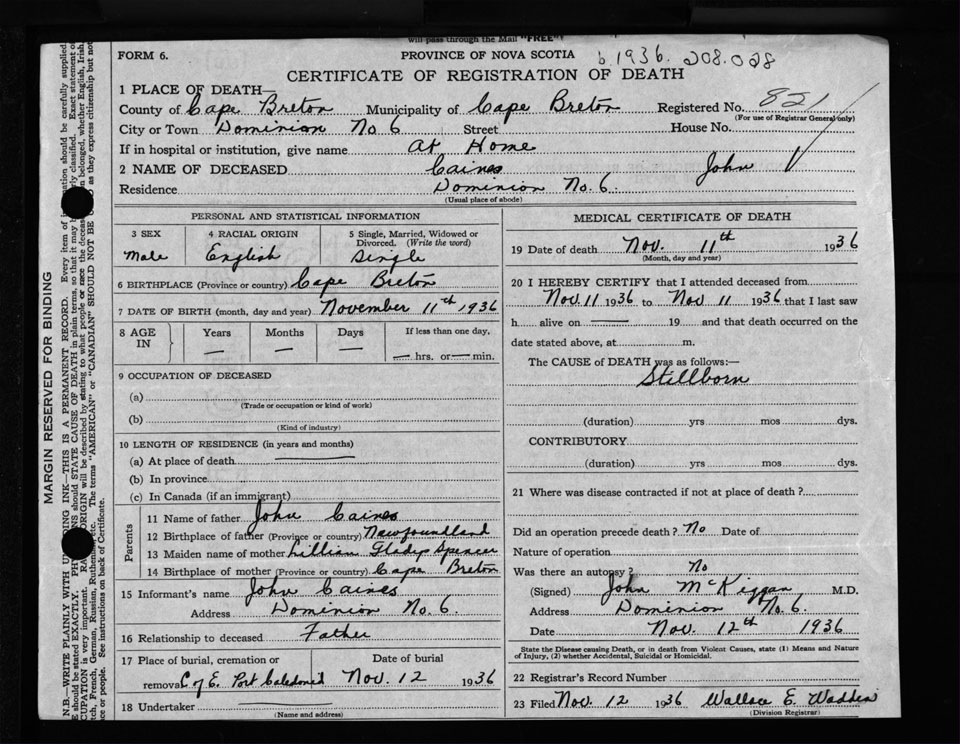 will pass through the Mail "FREE"
FORM 6.
PROVINCE OF NOVA SCOTIA
b. 1936. 208.028
CERTIFICATE OF REGISTRATION OF DEATH
1 PLACE OF DEATH—
County of Cape Breton Municipality of Cape Breton Registered No. 821
(For use of Registrar General only)
City or Town Dominion No 6 Street House No.
If in hospital or institution, give name At Home
2 NAME OF DECEASED Caines John
Residence Dominion No. 6.
(Usual place of abode)
PERSONAL AND STATISTICAL INFORMATION
3 SEX 4 RACIAL ORIGIN 5 Single, Married, Widowed or
Divorced. (Write the word)
Male English Single
6 BIRTHPLACE (Province or country) Cape Breton
7 DATE OF BIRTH (month, day and year) November 11th 1936
8 AGE IN Years Months Days If less than one day,
— — — — hrs. or — min.
9 OCCUPATION OF DECEASED
(a)
(Trade or occupation or kind of work)
(b)
(Kind of industry)
10 LENGTH OF RESIDENCE (in years and months)
(a) At place of death
(b) In province
(c) In Canada (if an immigrant)
Parents
11 Name of father John Caines
12 Birthplace of father (Province or country) Newfoundland
13 Maiden name of mother Lillian Gladys Spencer
14 Birthplace of mother (Province or country) Cape Breton
15 Informant's name John Caines
Address Dominion No. 6.
16 Relationship to deceased Father
17 Place of burial, cremation or Date of burial
removal C of E. Port Caledonia Nov. 12 1936
18 Undertaker
(Name and address)
MEDICAL CERTIFICATE OF DEATH
19 Date of death Nov. 11th 1936
(Month, day and year)
20 I HEREBY CERTIFY that I attended deceased from
Nov. 11 1936 to Nov 11 1936 that I last saw
h alive on — 19 and that death occurred on the
date stated above, at m.
The CAUSE of DEATH was as follows:—
Stillborn
(duration) yrs mos dys.
CONTRIBUTORY
(duration) yrs mos dys.
21 Where was disease contracted if not at place of death?
Did an operation precede death? No Date of
Nature of operation
Was there an autopsy? No
(Signed) John McKiggan M.D.
Address Dominion No. 6.
Date Nov. 12th 1936
State the Disease causing Death, or in death from Violent Causes, state (1) Means and Nature
of Injury, (2) whether Accidental, Suicidal or Homicidal.
22 Registrar's Record Number
23 Filed Nov. 12 1936 Wallace E. Wadden
(Division Registrar)
MARGIN RESERVED FOR BINDING
N.B.—WRITE PLAINLY WITH UNFADING INK—THIS IS A PERMANENT RECORD. Every item of information should be carefully supplied.
should be stated EXACTLY. should STATE CAUSE OF DEATH in plain terms, so that it may be classified. Exact statement of
is very important. will be described by stating to what people or race the deceased belonged, whether English, Irish,
French, German, Russian, Ruthenian, etc. The terms "AMERICAN" or "CANADIAN" SHOULD NOT BE as they express citizenship but not
or people. See instructions on back of Certificate.